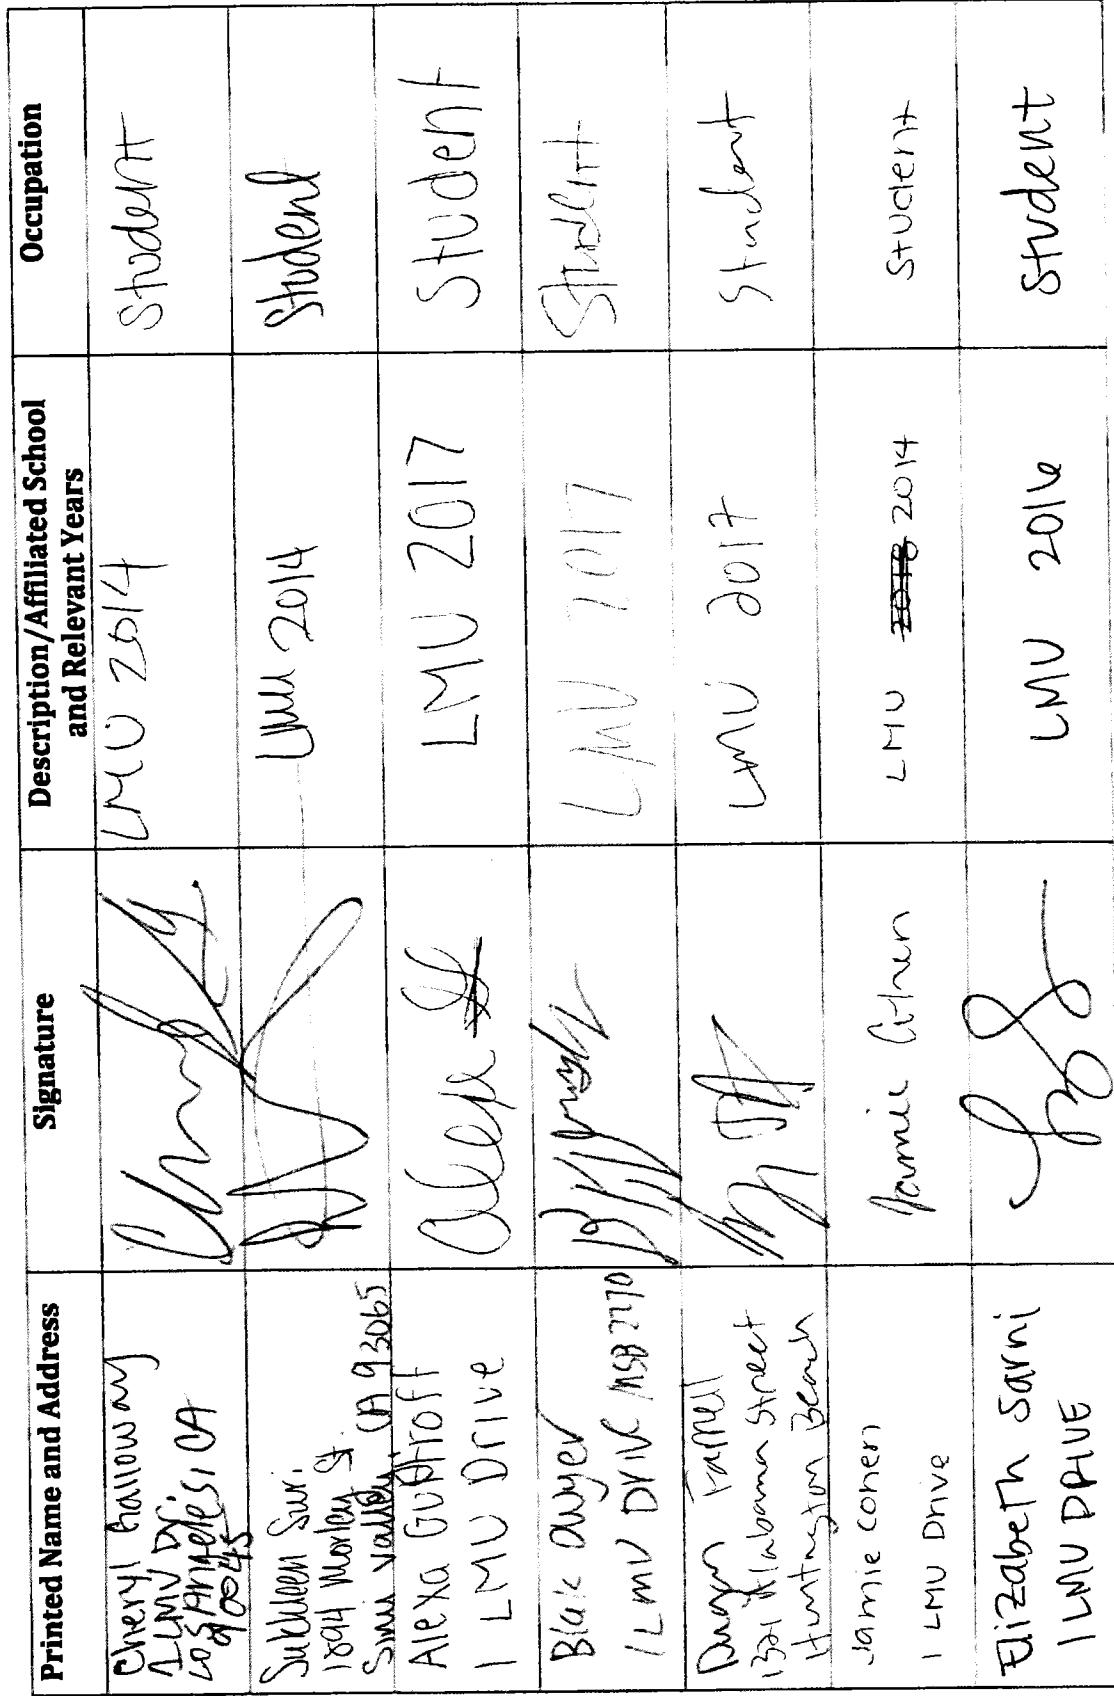 Printed Name and Address
Signature
Description/Affiliated School
and Relevant Years
Occupation
Cheryl Halloway
1 LMU Dr.
Los Angeles, CA
90045
LMU 2014
Student
Sukhleen Suri
1894 Morley St.
Simi Valley, CA 93065
LMU 2014
Student
Alexa
1 LMU Drive
Alexa
LMU 2017
Student
Dwyer
1 LMU DRIVE MSB 2270
LMU 2017
Student
Farrell
Alabama Street
Huntington Beach
LMU 2017
Student
Jamie Cohen
1 LMU Drive
Jamie Cohen
LMU 2014
Student
Elizabeth Sarni
1 LMU DRIVE
LMU 2016
Student